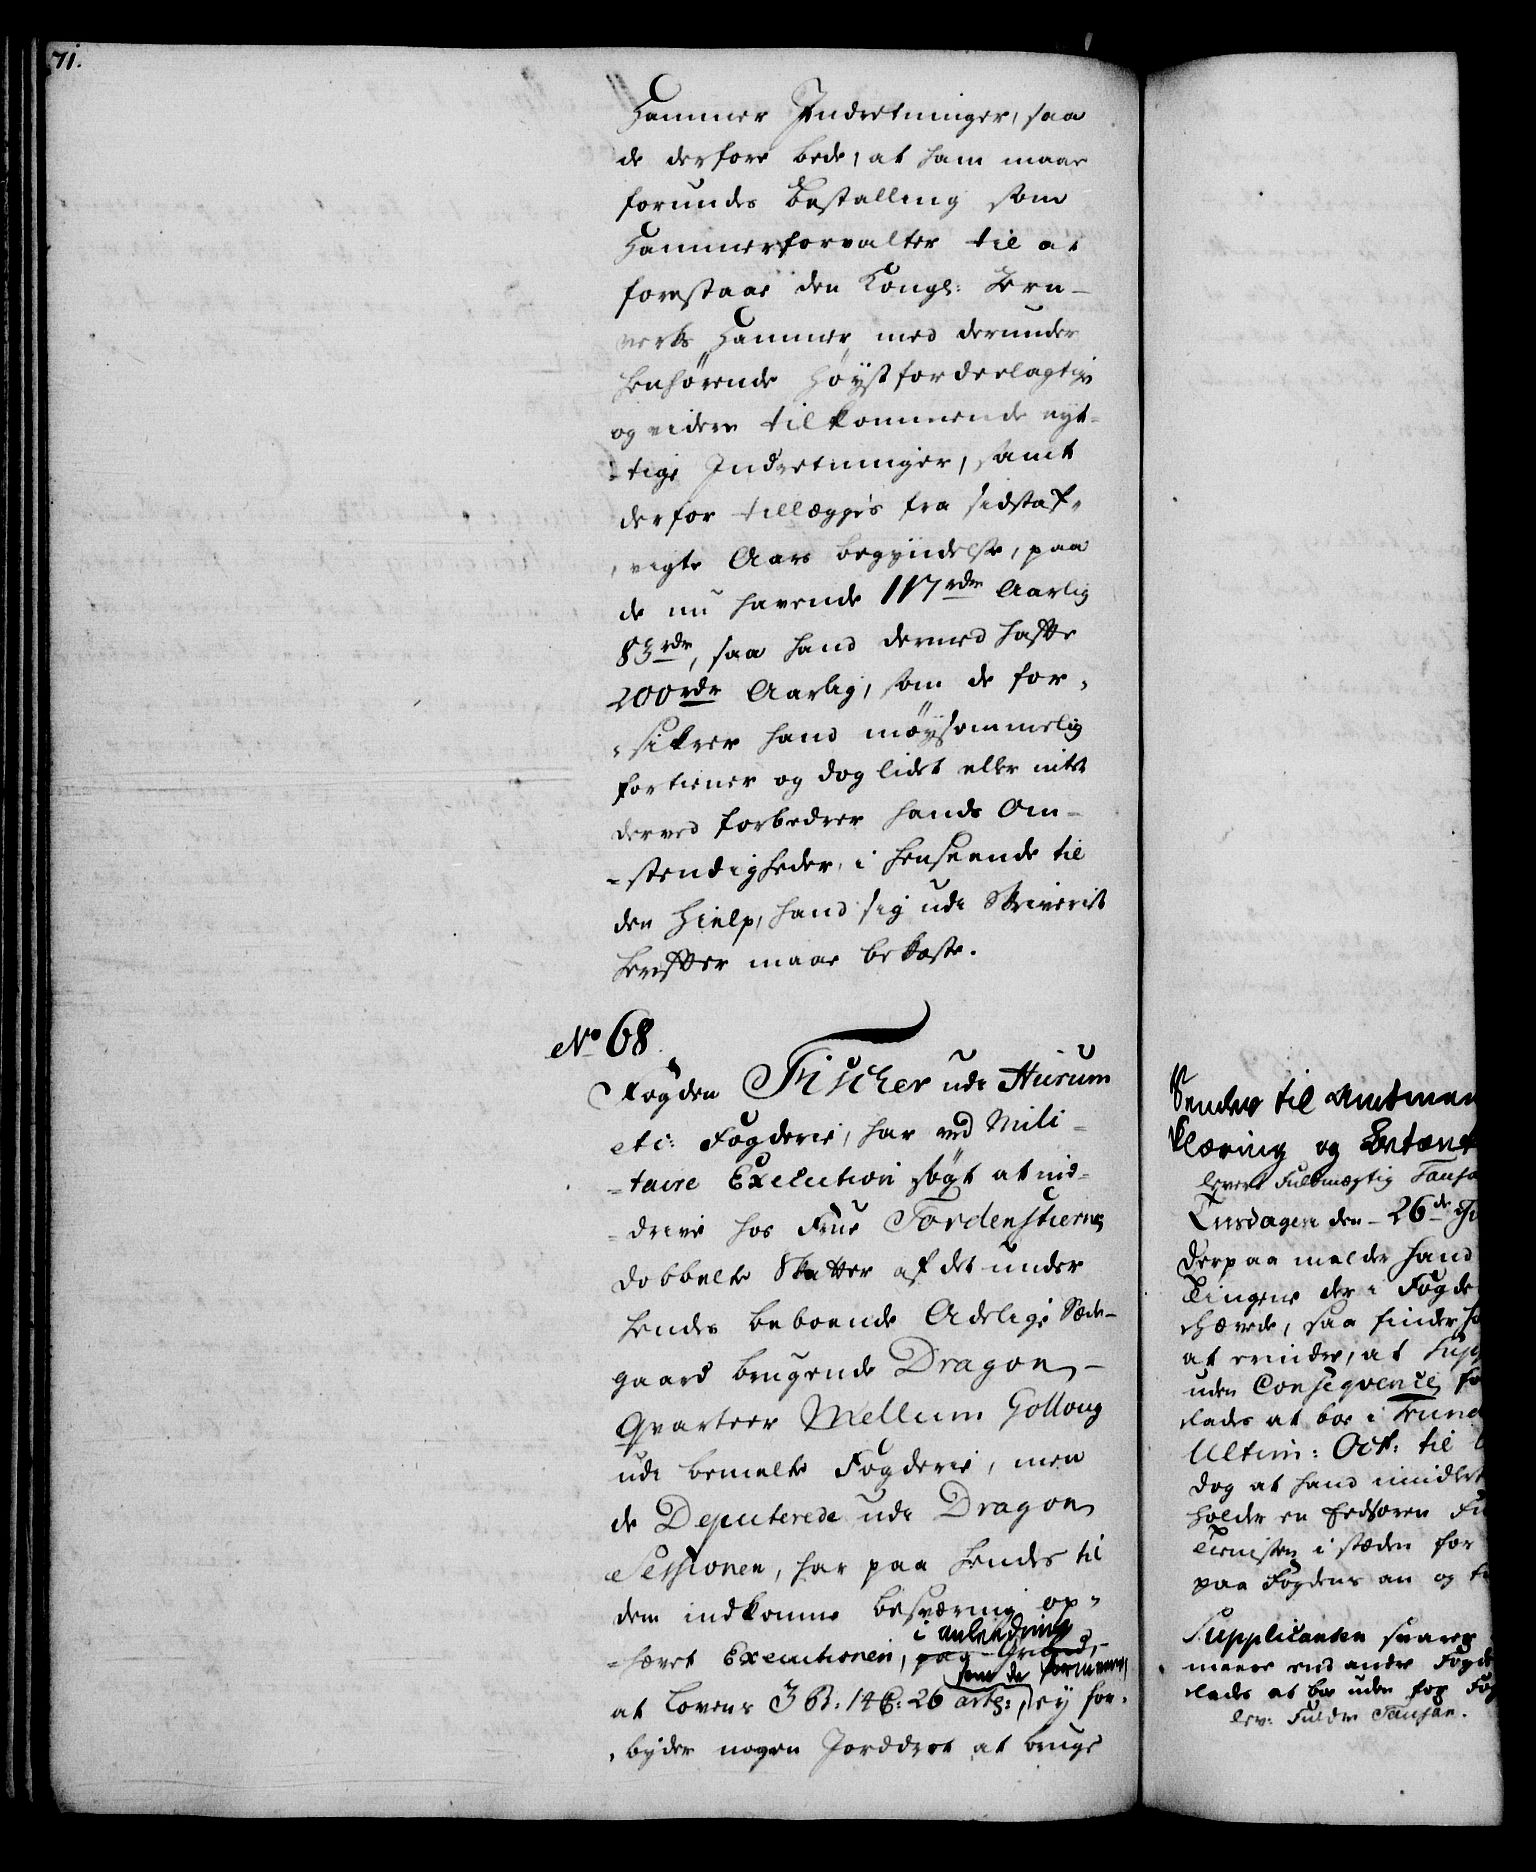 71.
Hammer Indretninger, saa
de derfore bede, at ham maae
forundes Bestalling som
Hammerforvalter til at
forestaae den Kongl: Jern-
verks Hammer, med derunder
henhørende høystfordeelagtige
og videre tilkommende nyt-
-tige Indretninger, samt
derfor tillægges fra sidstaf-
-vigte Aars begyndelse, paa
de nu havende 117 rdr Aarlig
83 rdr, saa hand dermed hafte
200 rdr Aarlig, som de for-
-sikrer hand møysommelig
fortiener og dog lidet eller intet
derved forbedrer hands Om-
-stendigheder, i henseende til
den Hielp, hand sig udi Skriverist
herefter maae bekoste.
No 68.
Fogden Fischer udi Hurum
etc: Fogderie, har ved Mili-
-taire Execution søgt at ind-
-drive hos Frue Tordenstierne
dobbelte Skatter af det under
hendes beboende Adelige Sæde-
gaard brugende Dragon-
Qvarteer Mellum Gollaug
udi bemelte Fogderie, men
de Deputerede udi Dragon
Sessionen, har paa hendes til
dem indkomne besværing op-
-hævet Executionen, paa Grund,
i anledning
som de formener,
at Lovens 3 B: 14 C: 26 artl:, ey for-
-byder nogen Jorddrot at bruge
Sendes til Amtmand
klæring og Betænk
leveret Fuldmægtig Fanso
Tirsdagen den 26de
Derpaa melder hand
Tingene der i Fogde
at erindre, at Supp
uden Conseqvence
-lades at boe i
Ultim: Oct: til
dog at hand imidlert
holder en Eedsvoren Fu
Tienisten i stæden for
paa Fogdens an og
Supplicanten svarer
meere end andre Fogde
-lades at boe uden for Fog
lev: Fuldm Fansan.